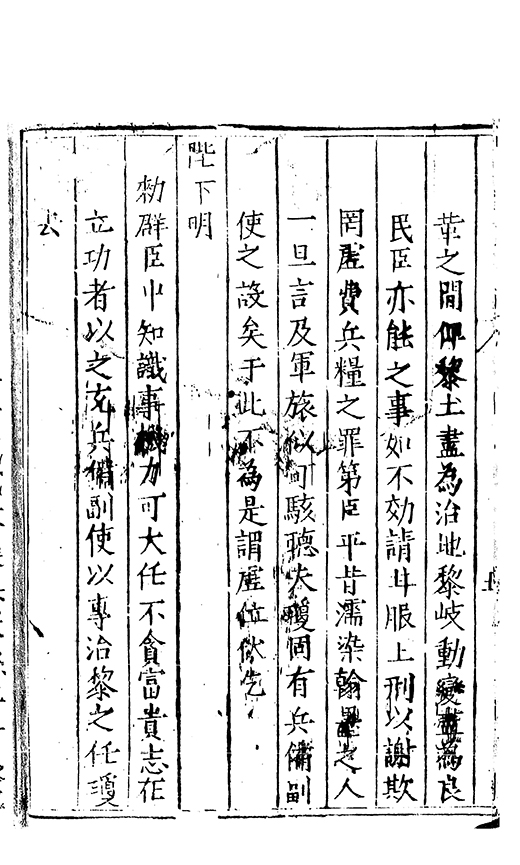 華之間仰黎土盡為治地黎岐動變盡為良
民臣亦能之事如不効請甘服上刑以謝欺
罔虛費兵糧之罪第臣平昔濡染翰墨之人
一旦言及軍旅似可駭聽夫瓊固有兵備副
使之設矣于此不為是謂虛位伏乞
陛下明
勑群臣中知識事機力可大任不貪富貴志在
立功者以之充兵備副使以專治黎之任瓊